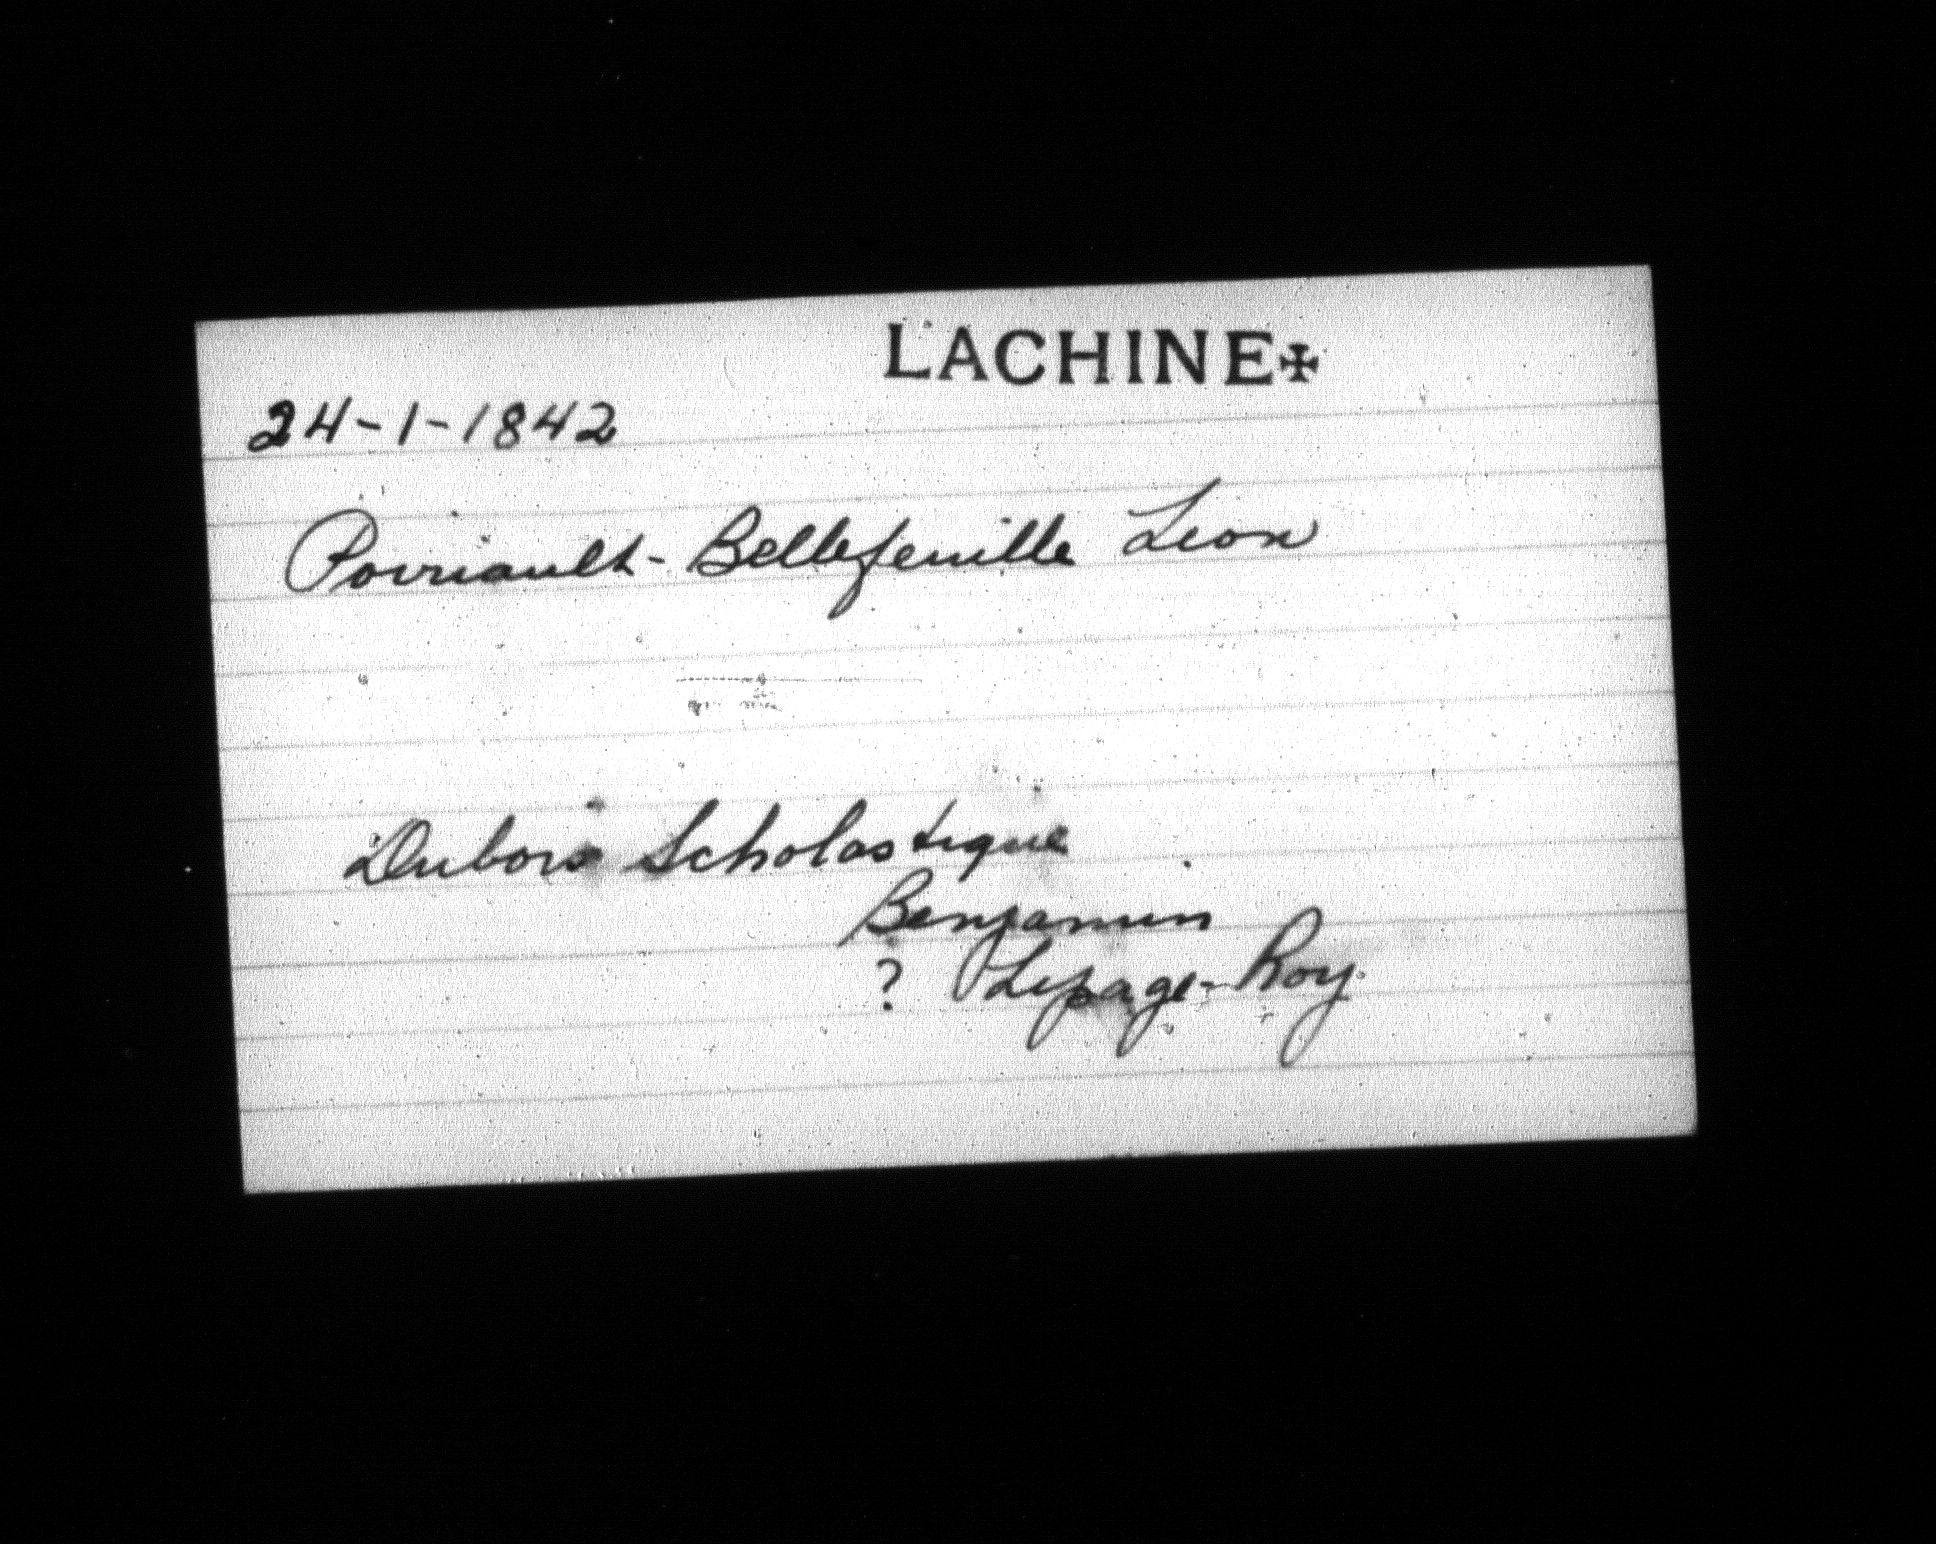 LACHINE✠
24-1-1842
Poirriault-Bellefeuille Leon
Dubois Scholastique
Benjamin
? Lepage-Roy